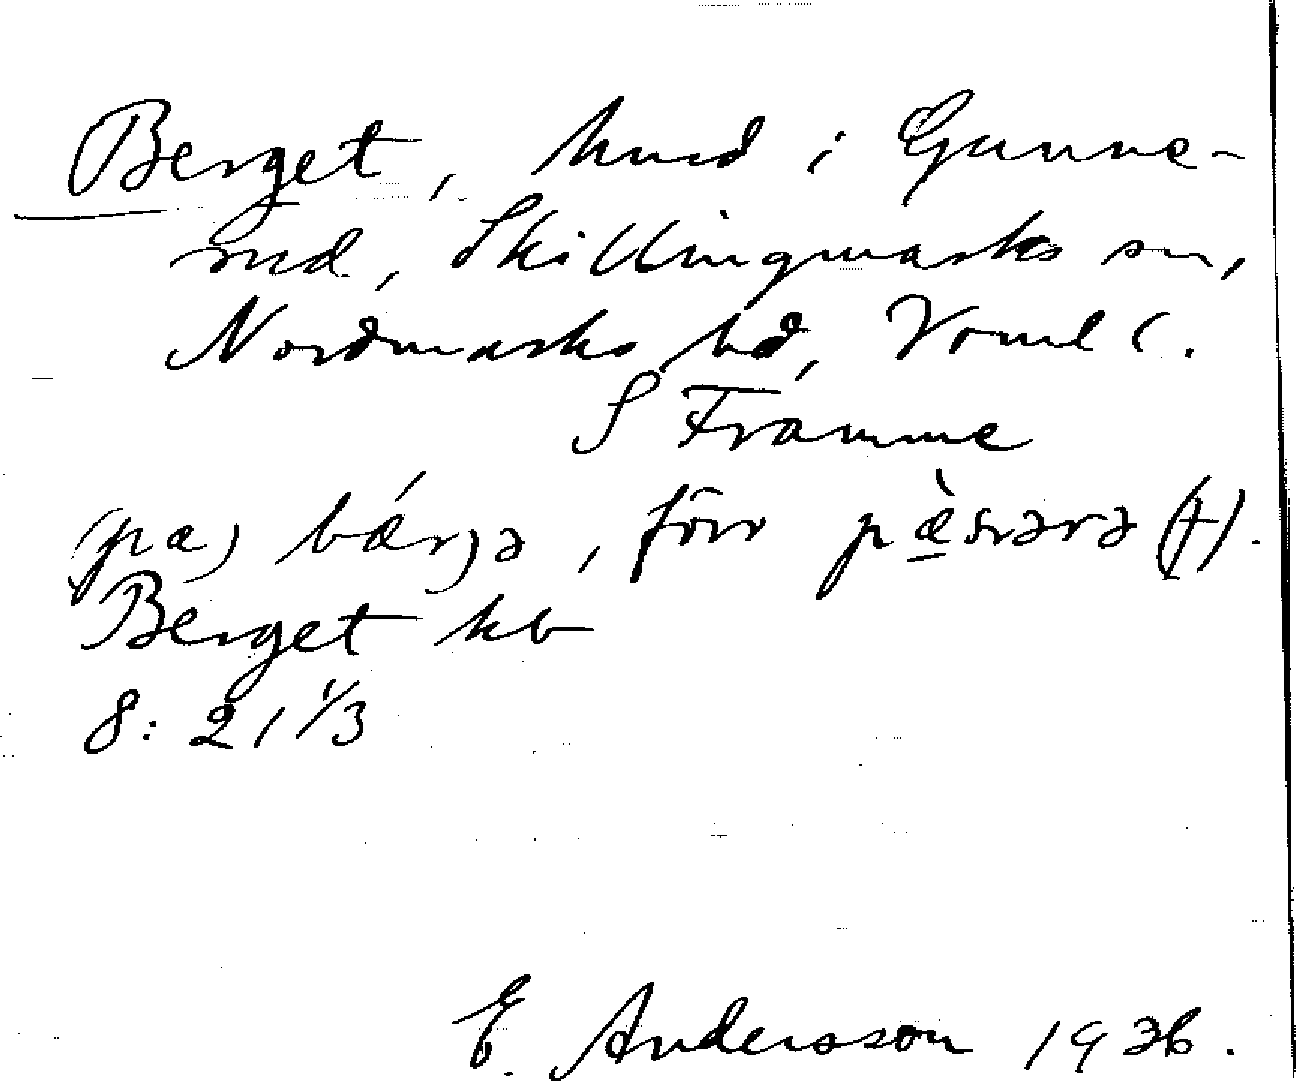 Berget, hmd i Gunne-
rud, Skillingmarks sn,
Nordmarks hd, Värml.
S Främme
(pa) bǽrjə, förr pæ̀svərə (†).
Berget kb
8: 21 1/3
E. Andersson 1936.